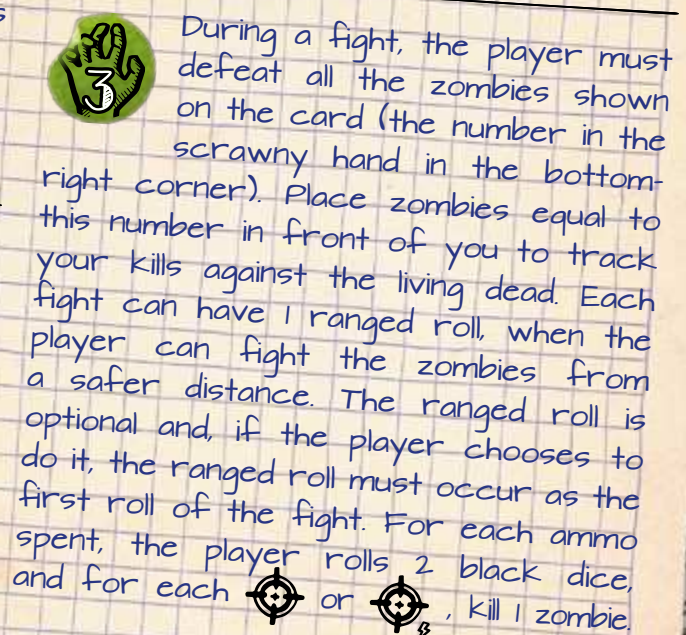 3
During a fight, the player must
defeat all the zombies shown
on the card (the number in the
scrawny hand in the bottom-
right corner). Place zombies equal to
this number in front of you to track
your kills against the living dead. Each
fight can have 1 ranged roll, when the
player can fight the zombies from
a safer distance. The ranged roll is
optional and, if the player chooses to
do it, the ranged roll must occur as the
first roll of the fight. For each ammo
spent, the player rolls 2 black dice,
and for each or , kill 1 zombie.